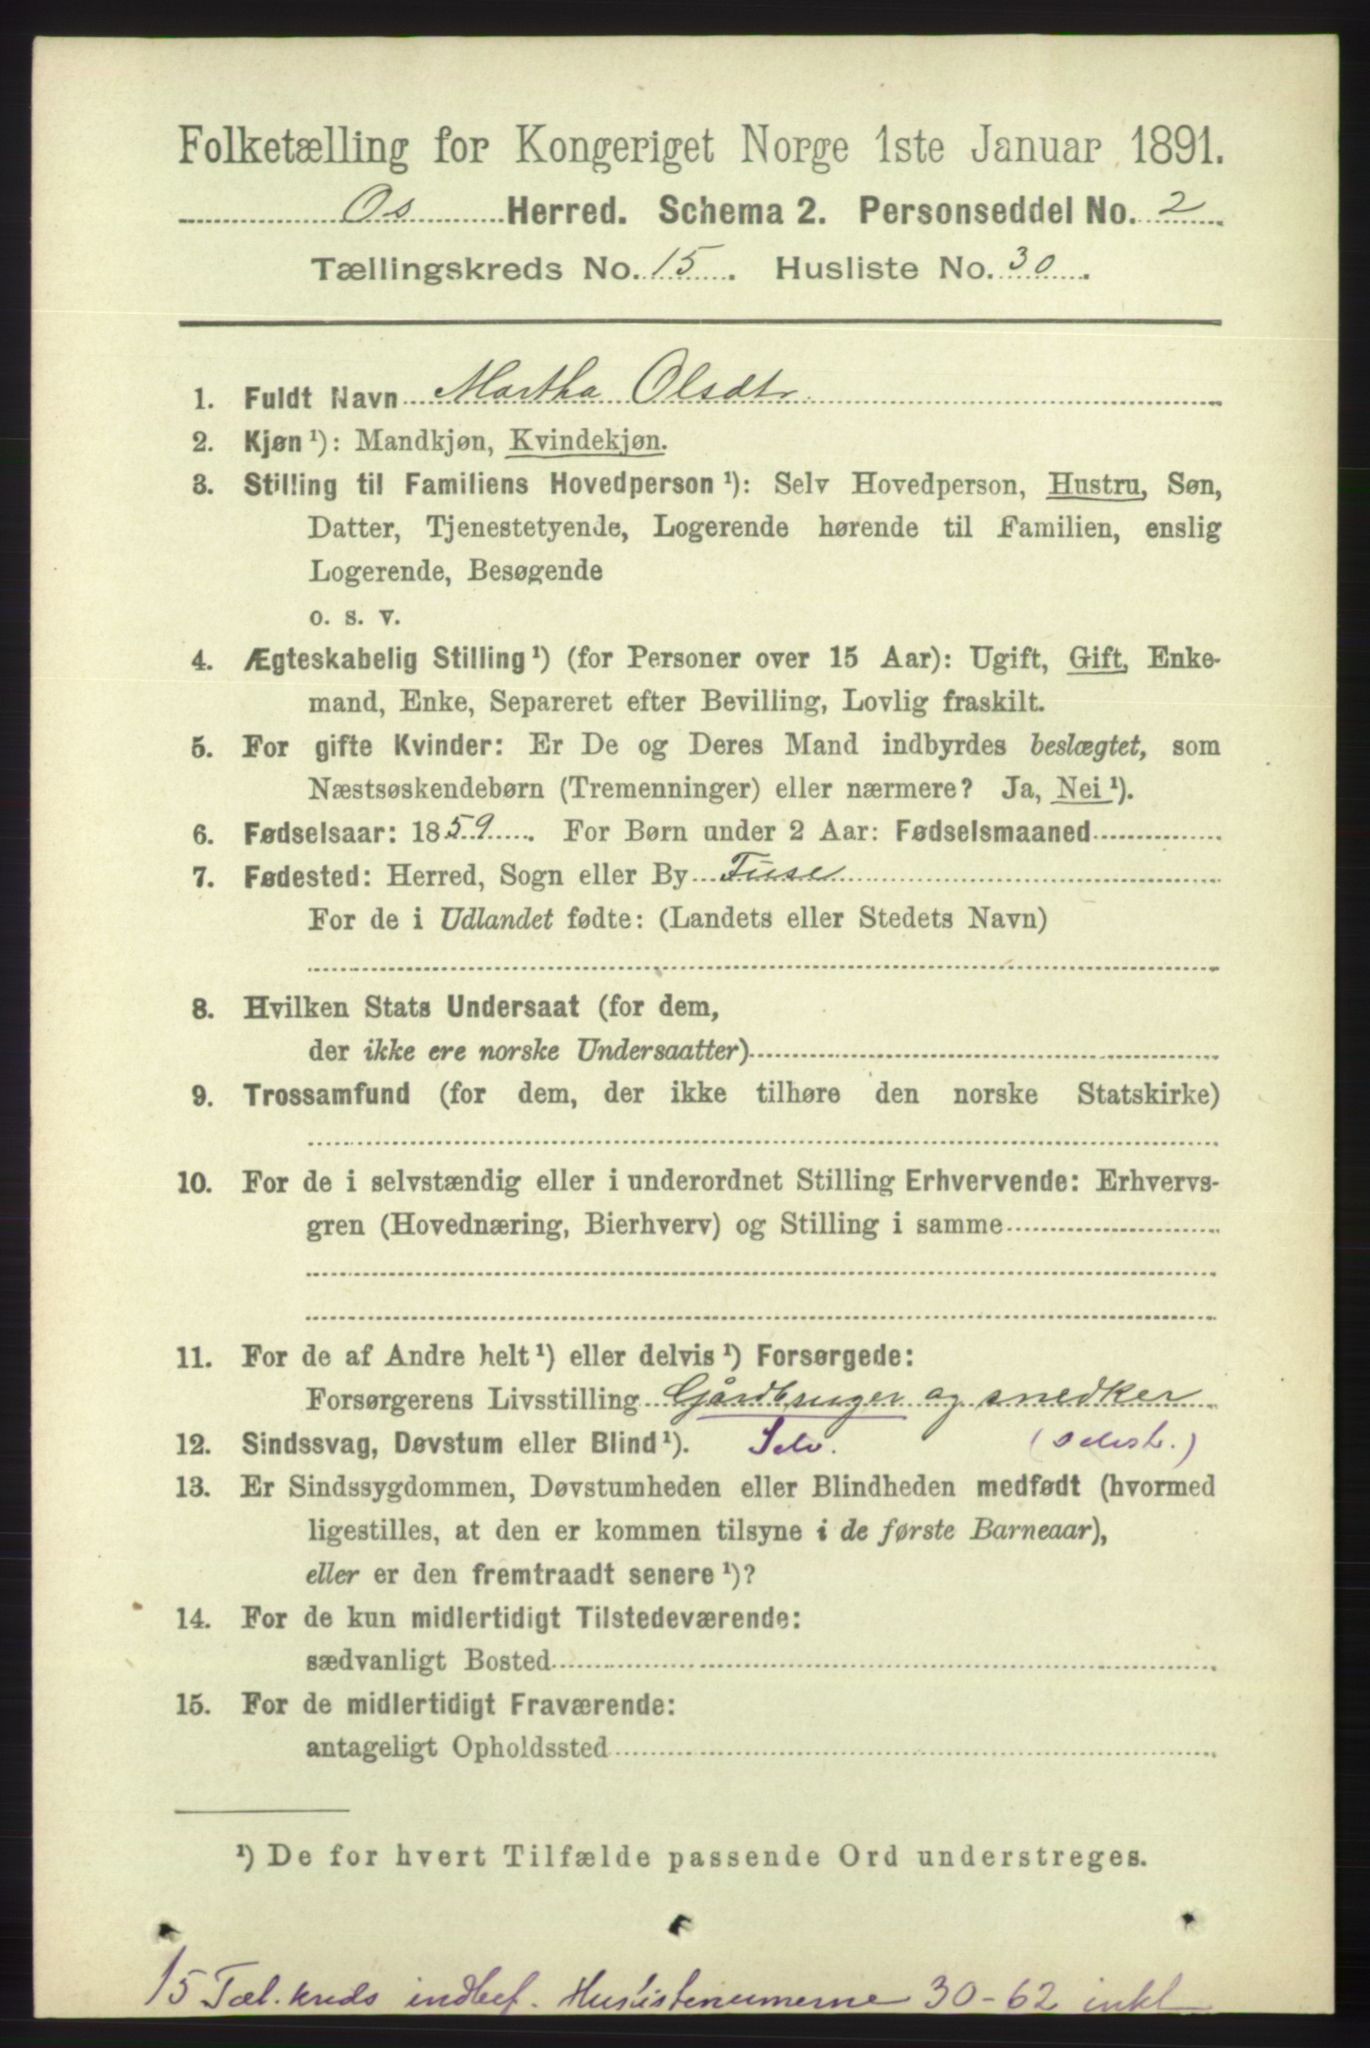 Folketælling for Kongeriget Norge 1ste Januar 1891.
Os Herred. Schema 2. Personseddel No. 2
Tællingskreds No. 15. Husliste No. 30.
1. Fuldt Navn Martha Olsdtr
2. Kjøn ¹): Mandkjøn, Kvindekjøn.
3. Stilling til Familiens Hovedperson ¹): Selv Hovedperson, Hustru, Søn,
Datter, Tjenestetyende, Logerende hørende til Familien, enslig
Logerende, Besøgende
o. s. v.
4. Ægteskabelig Stilling ¹) (for Personer over 15 Aar): Ugift, Gift, Enke-
mand, Enke, Separeret efter Bevilling, Lovlig fraskilt.
5. For gifte Kvinder: Er De og Deres Mand indbyrdes beslægtet, som
Næstsøskendebørn (Tremenninger) eller nærmere? Ja, Nei ¹).
6. Fødselsaar: 1859. For Børn under 2 Aar: Fødselsmaaned
7. Fødested: Herred, Sogn eller By Fuse
For de i Udlandet fødte: (Landets eller Stedets Navn)
8. Hvilken Stats Undersaat (for dem,
der ikke ere norske Undersaatter)
9. Trossamfund (for dem, der ikke tilhøre den norske Statskirke)
10. For de i selvstændig eller i underordnet Stilling Erhvervende: Erhvervs-
gren (Hovednæring, Bierhverv) og Stilling i samme
11. For de af Andre helt ¹) eller delvis ¹) Forsørgede:
Forsørgerens Livsstilling Gårdbruger og snedker
12. Sindssvag, Døvstum eller Blind ¹). Selv.
13. Er Sindssygdommen, Døvstumheden eller Blindheden medfødt (hvormed
ligestilles, at den er kommen tilsyne i de første Barneaar),
eller er den fremtraadt senere ¹)?
14. For de kun midlertidigt Tilstedeværende:
sædvanligt Bosted
15. For de midlertidigt Fraværende:
antageligt Opholdssted
¹) De for hvert Tilfælde passende Ord understreges.
15 Tæl.kreds indbef. Huslistenumerne 30-62 inkl